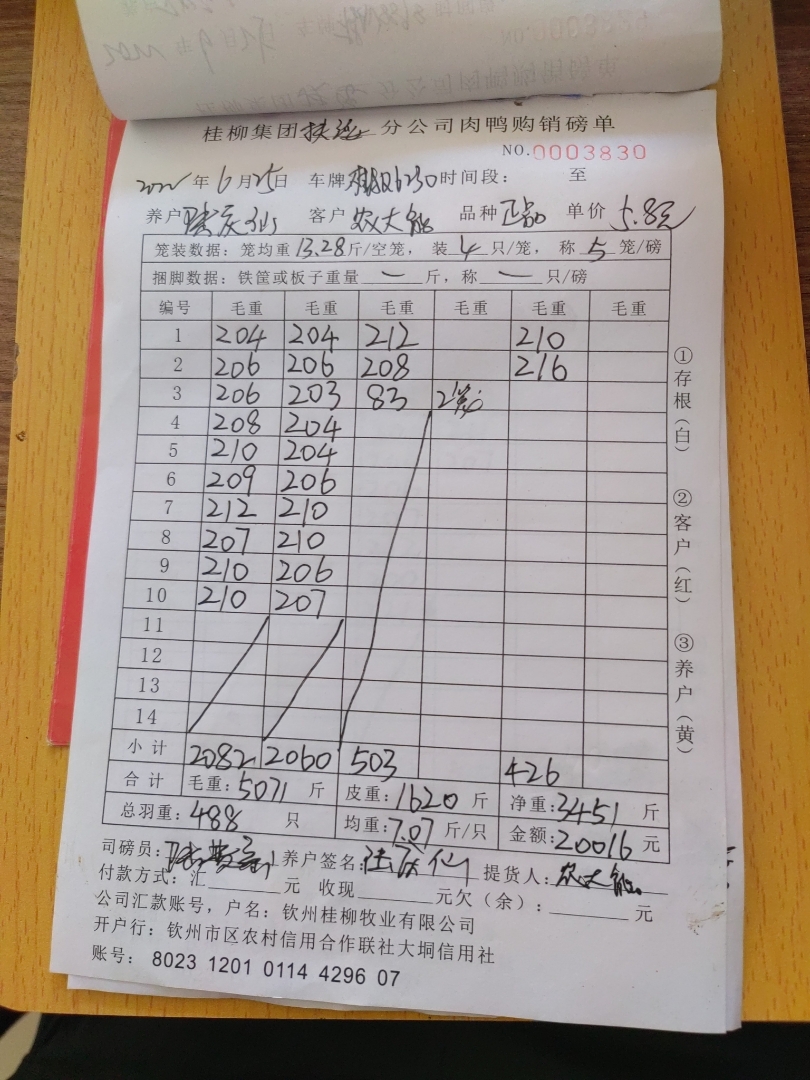 桂柳集团扶绥分公司肉鸭购销磅单
NO.0003830
2022年6月25日 车牌 6230时间段： 至
养户 庆仙 客户 农大能 品种 正品 单价 5.8元
笼装数据：笼均重13.28斤/空笼，装4只/笼，称5笼/磅
捆脚数据：铁筐或板子重量一斤，称一只/磅
编号 毛重 毛重 毛重 毛重 毛重 毛重
1 204 204 212 210
2 206 206 208 216
3 206 203 83 2笼
4 208 204
5 210 204
6 209 206
7 212 210
8 207 210
9 210 206
10 210 207
11
12
13
14
小计 2082 2060 503 426
合计 毛重：5071斤 皮重：1620斤 净重：3451斤
总羽重：488只 均重：7.07斤/只 金额：20016元
司磅员： 养户签名： 庆仙 提货人：农大能
付款方式：汇 元 收现 元欠（余）： 元
公司汇款账号，户名：钦州桂柳牧业有限公司
开户行：钦州市区农村信用合作联社大垌信用社
账号：8023 1201 0114 4296 07
①存根（白） ②客户（红） ③养户（黄）